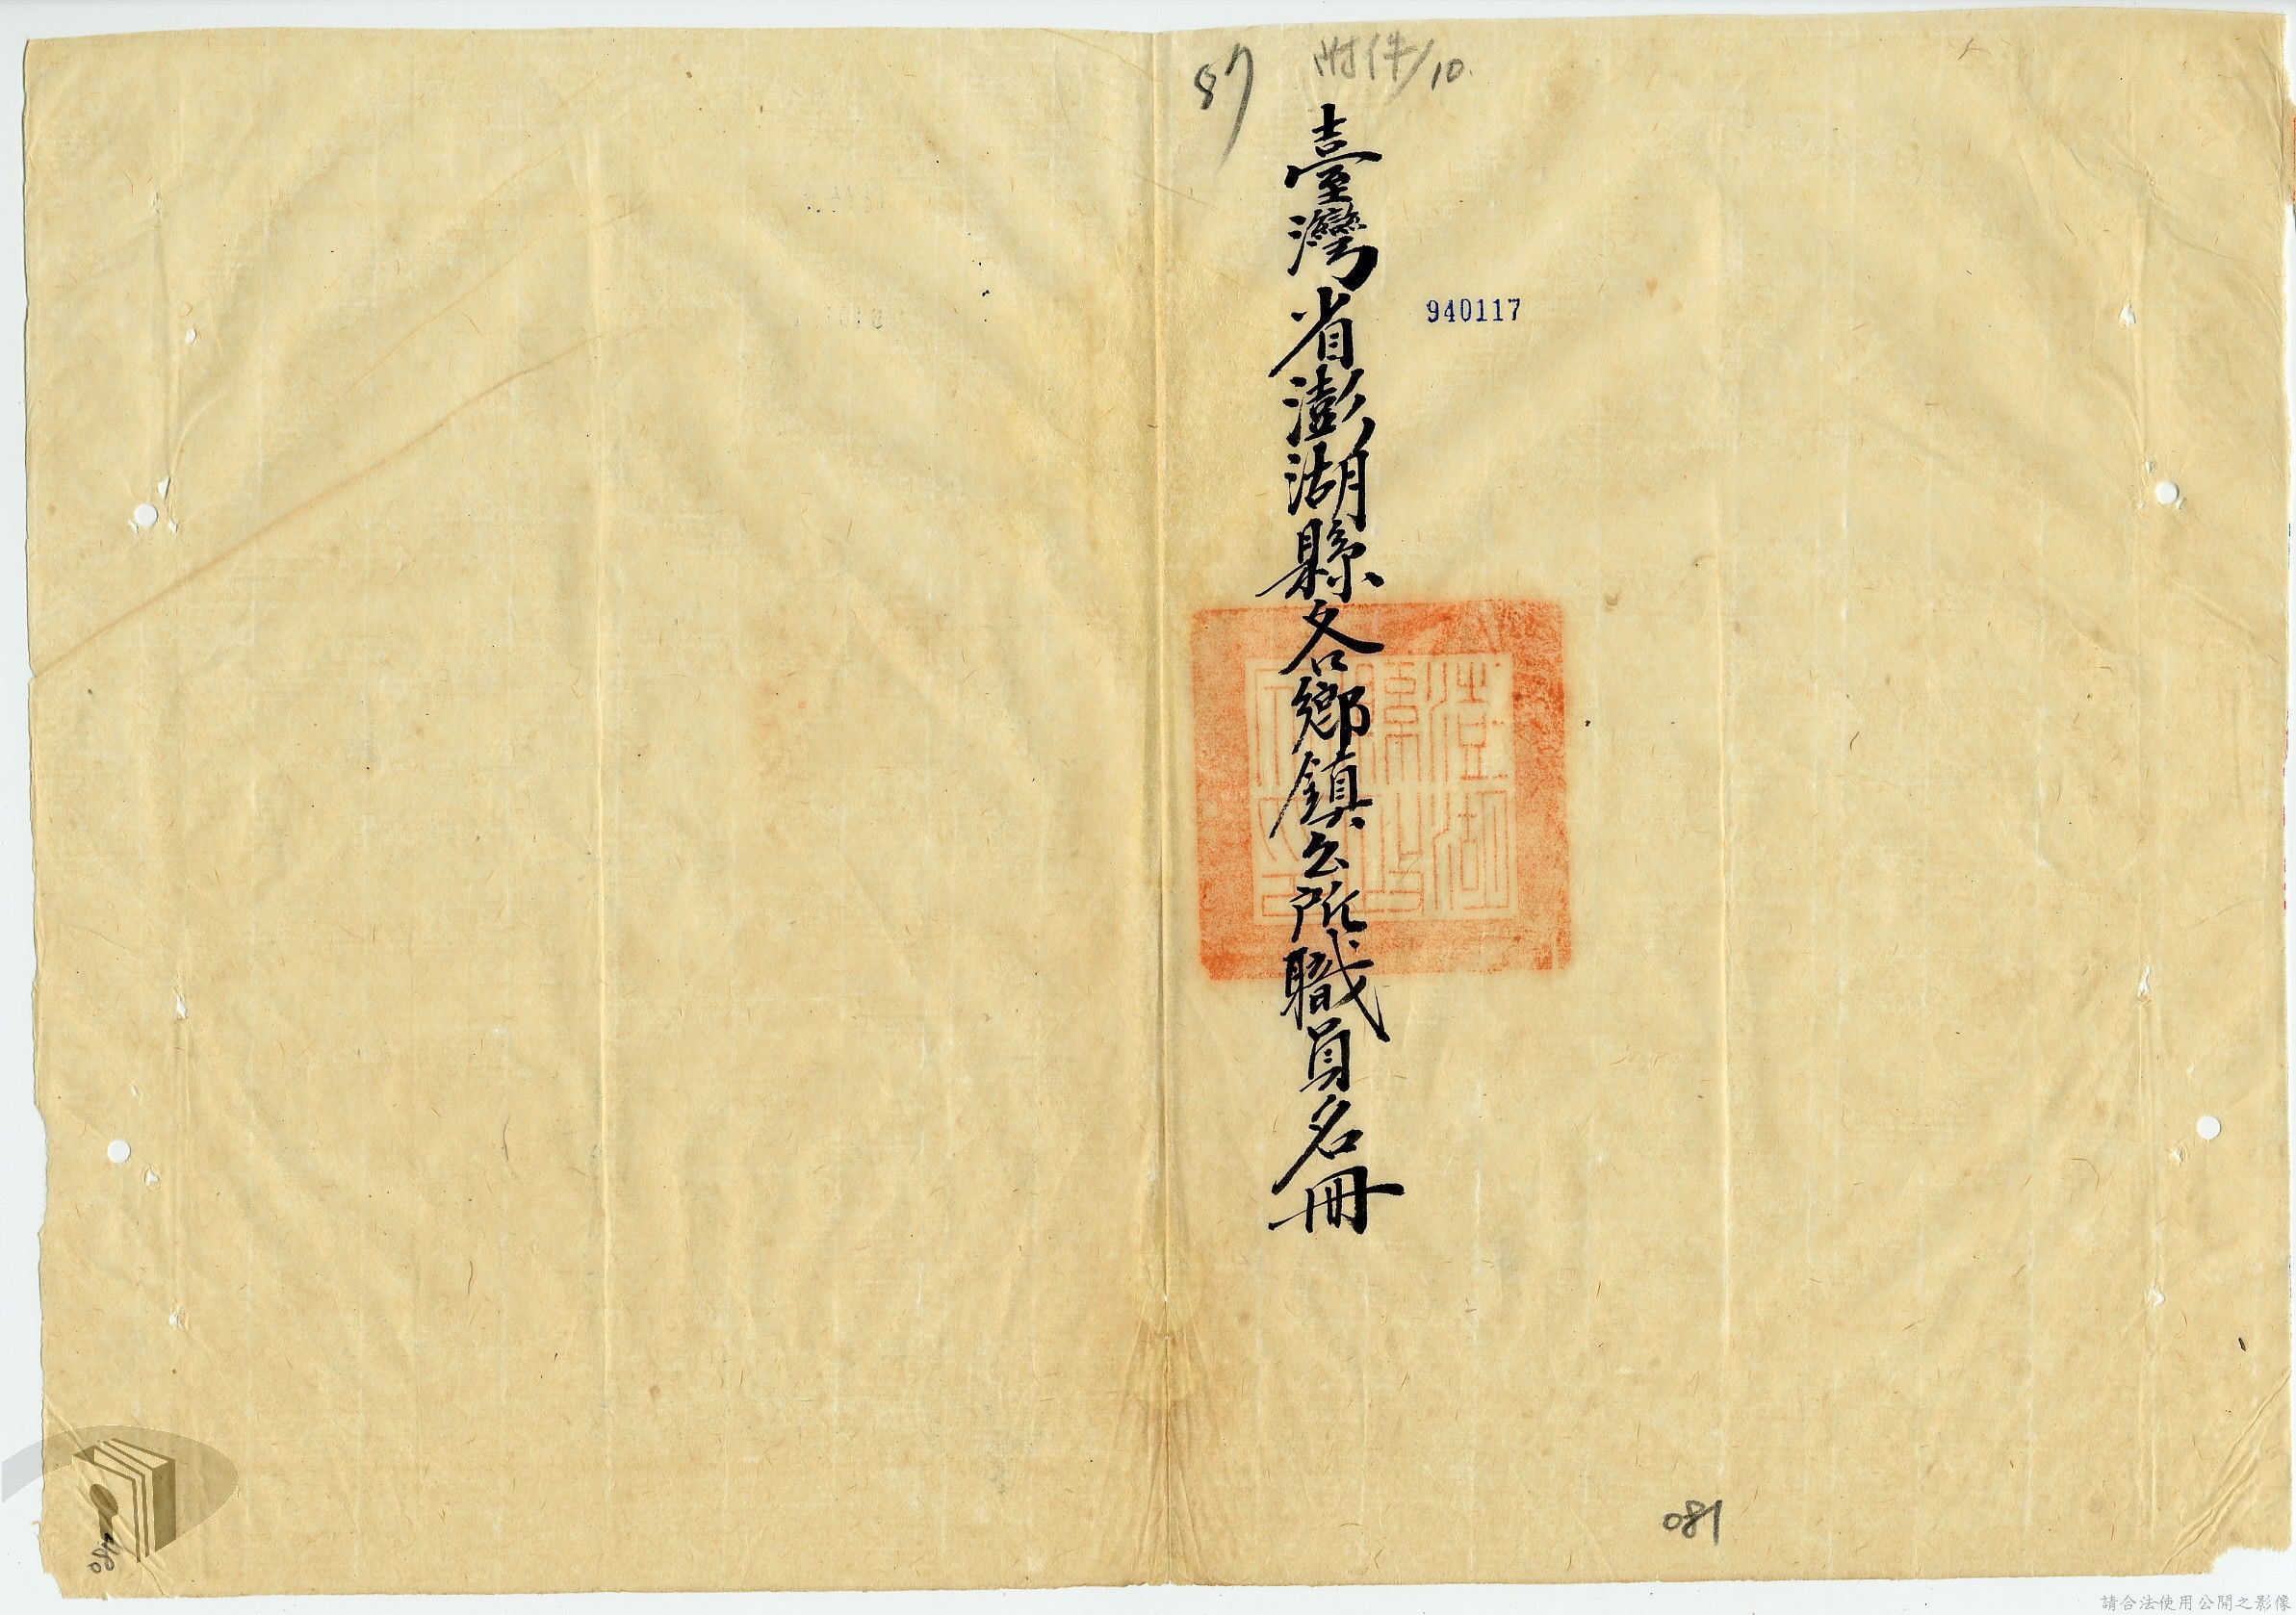 87
附件10
臺灣省澎湖縣各鄉鎮公所職員名冊
940117
081
請合法使用公開之影像